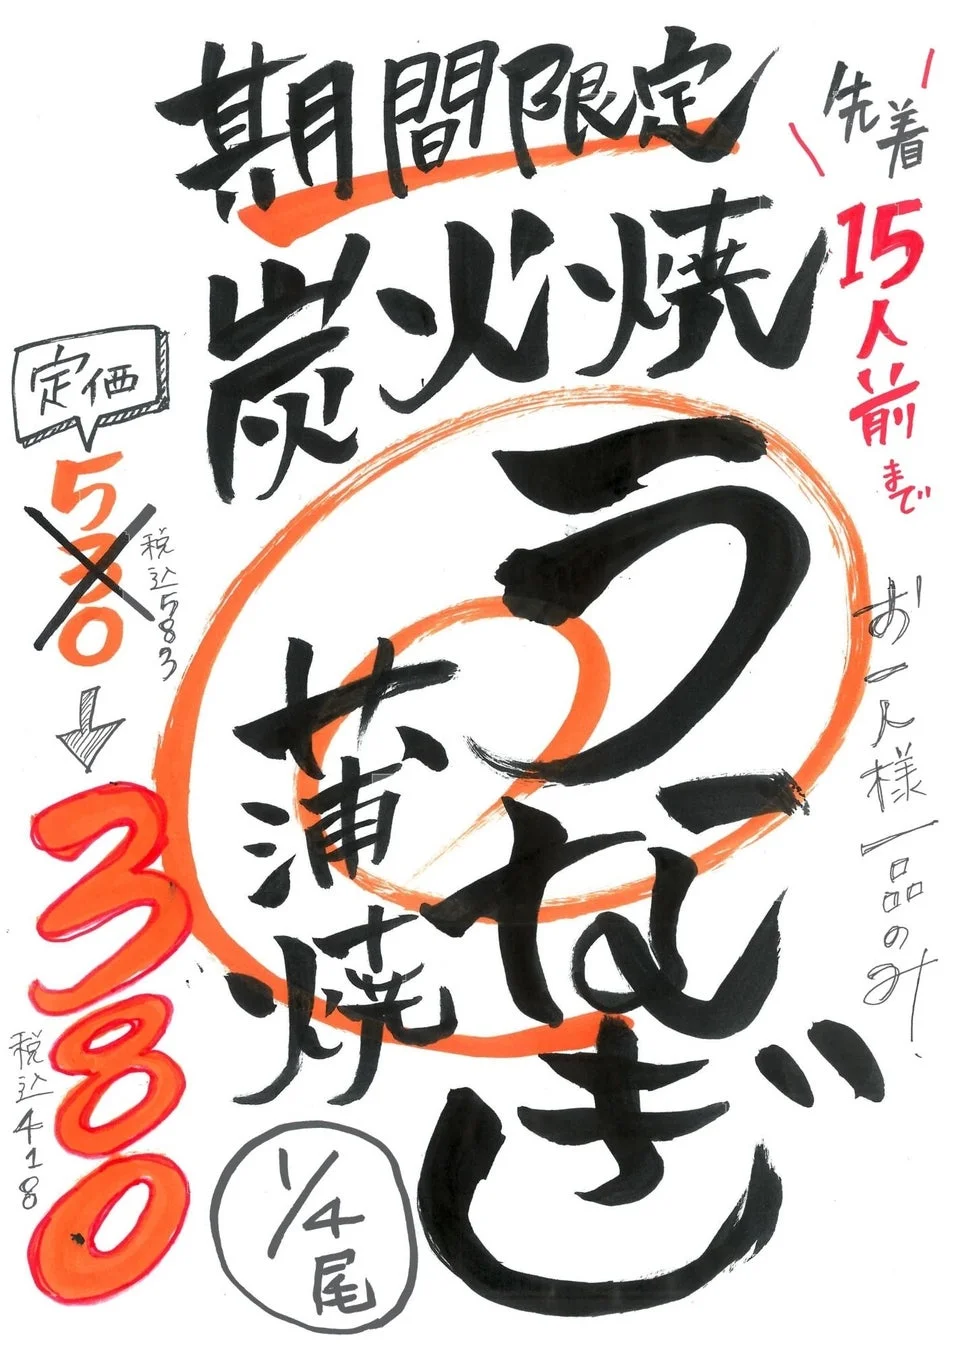 期間限定
炭火焼
うなぎ
蒲焼
1/4尾
先着
15人前まで
お一人様一品のみ.
定価
530
税込583
380
税込418